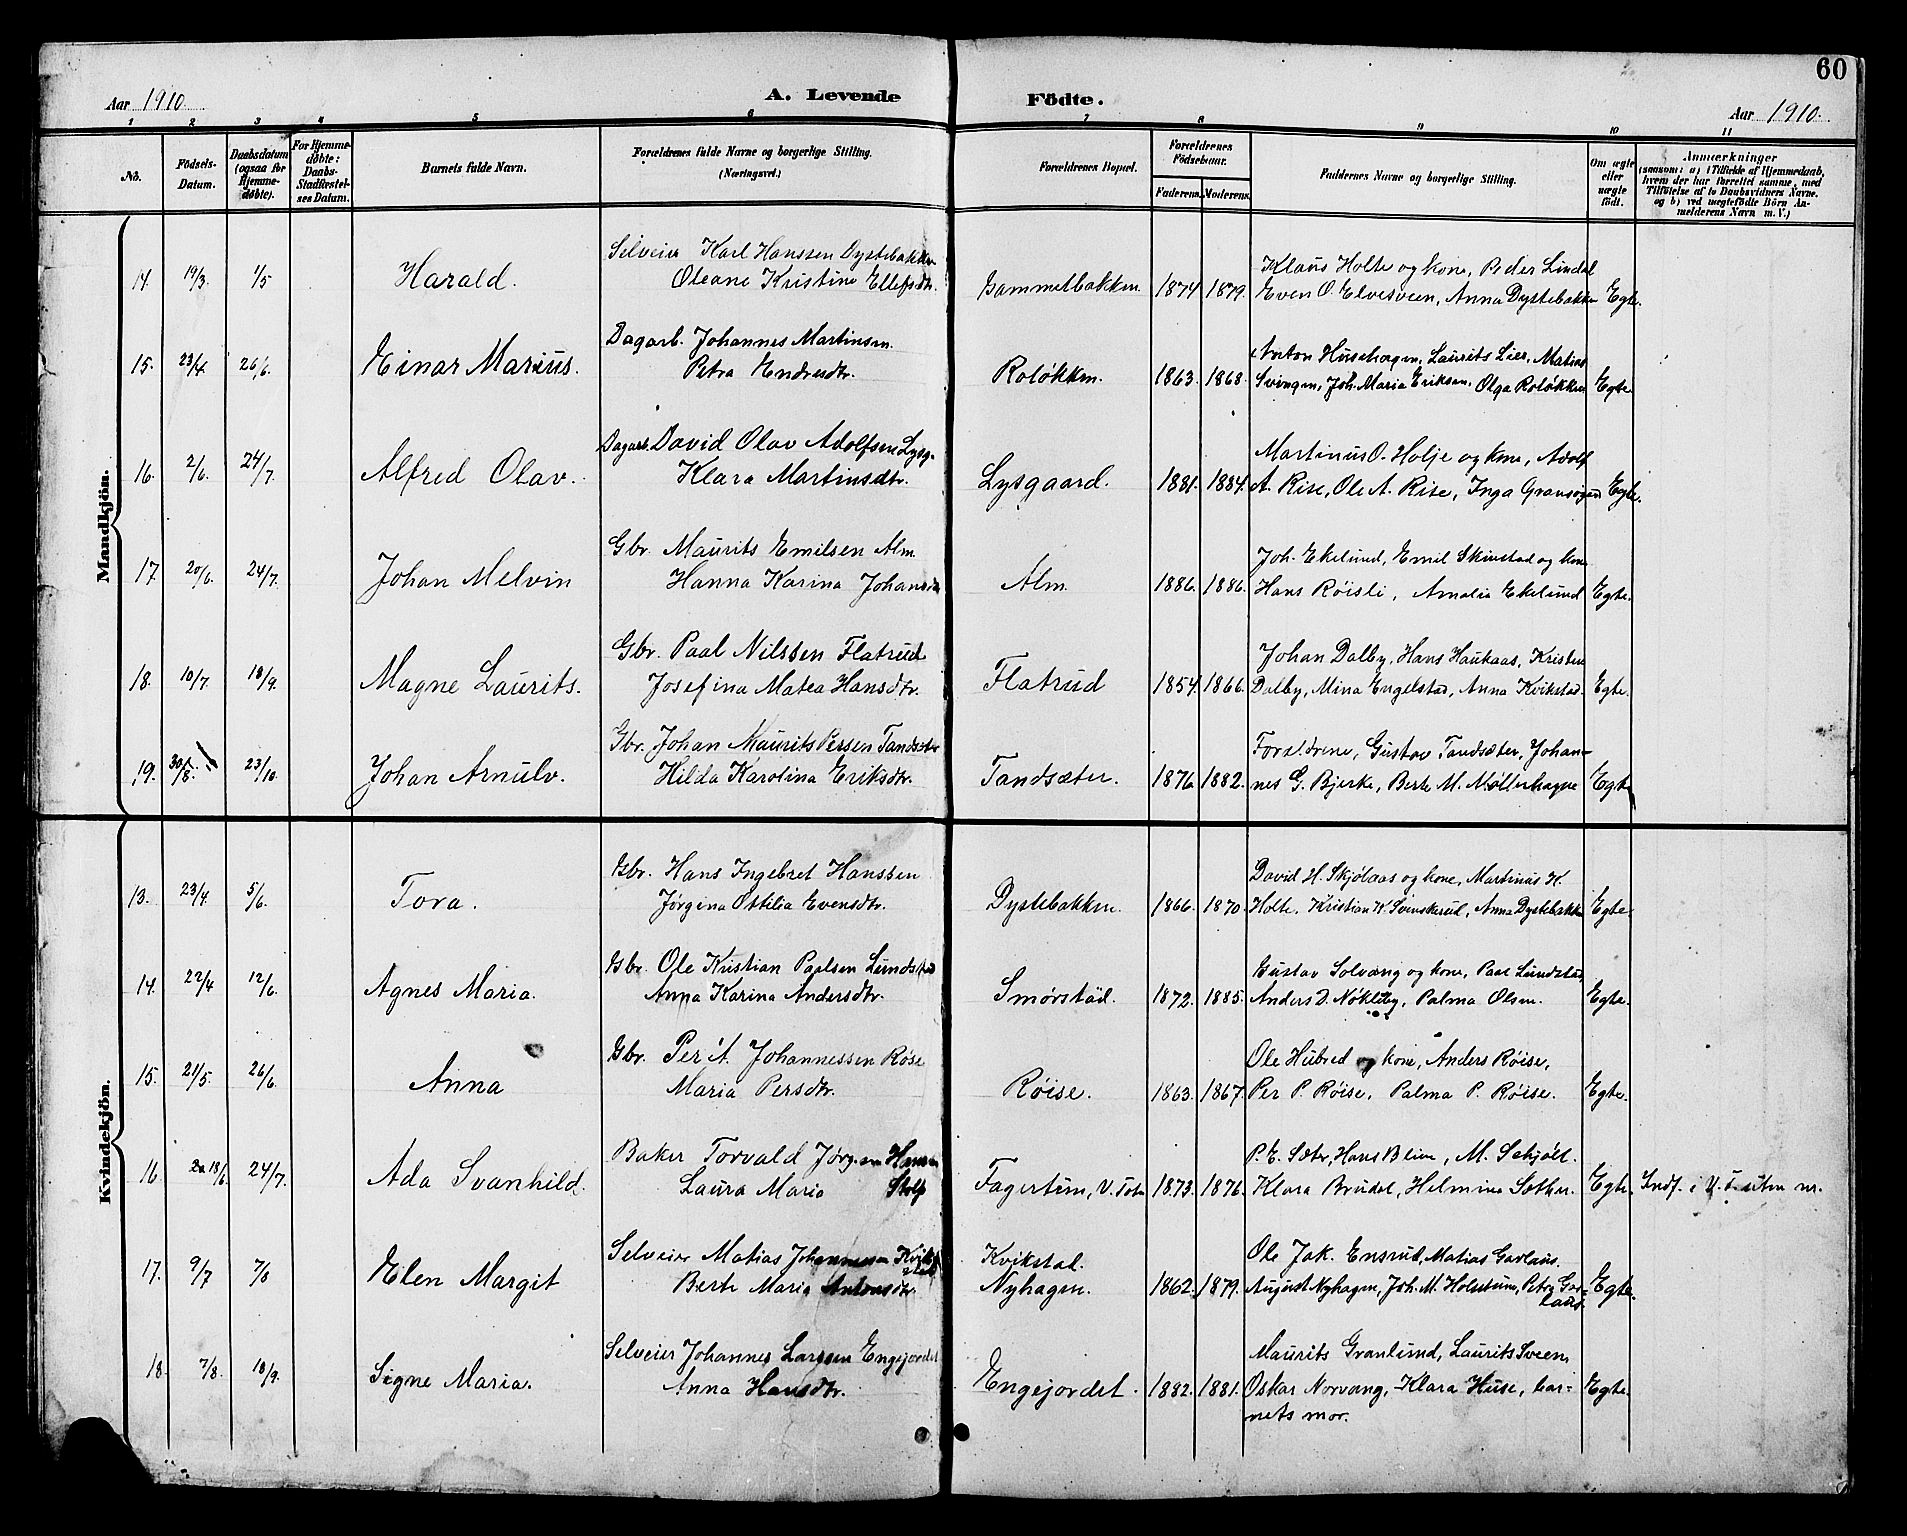 60
Aar 1910. A. Levende Födte. Aar 1910.
1 2 3 4 5 6 7 8 9 10 11
No.
Födsels-
Datum.
Daabsdatum
(ogsaa for
Hjemme-
døbte).
For Hjemme-
døbte:
Daabs-
Stadfæstel-
ses Datum.
Barnets fulde Navn.
Forældrenes fulde Navne og borgerlige Stilling.
(Næringsvei.)
Forældrenes Bopæl.
Forældrenes
Födselsaar.
Faderens. Moderens.
Faddernes Navne og borgerlige Stilling.
Om ægte
eller
uægte
født.
Anmærkninger
(saasom: a) i Tilfælde af Hjemmedaab,
hvem der har forrettet samme, med
Tilføielse af to Daabsvidners Navne,
og b) ved uægtefødte Börn An-
melderens Navn m. V.)
Mandkjön.
14. 19/3. 1/5 Harald. Selveier Karl Hanssen Dystebakken
Oleane Kristine Ellefsdtr. Gammelbakken 1874 1879. Klaus Holte og kone, Peder Lindal
Even O. Elvesveen, Anna Dystebakken Egte.
15. 23/4. 26/6. Einar Marius. Dagarb. Johannes Martinsen
Petra Endresdtr. Roløkken. 1863. 1868. Anton Husehagen, Laurits Lier, Matias
Svingen, Joh. Maria Eriksen, Olga Roløkken Egte.
16. 2/6. 24/7. Alfred Olav. Dagarb. David Olav Adolfsen Lysg.
Klara Martinsdtr. Lysgaard. 1881. 1884. Martinus O. Holje og kone, Adolf
A. Rise, Ole A. Rise, Inga Gransøgen Egte.
17. 20/6. 24/7. Johan Melvin Gbr. Maurits Emilsen Alm
Hanna Karina Johansdtr Alm. 1886. 1886. Joh. Ekelund, Emil Skinstad og kone
Hans Röisli, Amalia Ekelund Egte.
18. 10/7. 18/9. Magne Laurits. Gbr. Paal Nilssen Flatrud
Josefina Matea Hansdtr. Flatrud 1854. 1866. Johan Dalby, Hans Haukaas, Kristen
Dalby, Mina Engelstad, Anna Kvikstad. Egte.
19. 30/8. 23/10. Johan Arnulv. Gbr. Johan Maurits Persen Tandsæter
Hilda Karolina Eriksdtr. Tandsæter. 1876. 1882. Forældrene, Gustav Tandsæter, Johan-
nes G. Bjerke, Berte M. Møllerhagne Egte
Kvindekjön.
13. 23/4. 5/6. Tora. Gbr. Hans Ingebret Hanssen
Jørgina Ottilia Evensdtr. Dystebakken. 1866. 1870. David H. Skjølaas og kone, Martinus K.
Holte, Kristian K. Svenskerud, Anna Dystebakken Egte.
14. 22/4 12/6. Agnes Maria. Gbr. Ole Kristian Paulsen Lundstad
Anna Karina Andersdtr. Smørstad. 1872. 1885. Gustav Solvang og kone, Paul Lundstad
Anders D. Nøkleby, Palma Olsen. Egte.
15. 21/5. 26/6. Anna Gbr. Per A. Johannessen Røse
Maria Persdtr. Röise. 1863. 1867. Ole Hubred og kone, Anders Röise,
Per P. Röise, Palma P. Röise. Egte.
16. 18/6. 24/7. Ada Svanhild. Baker Torvald Jørgen Hansen
Laura Maria Stolp Fagertun, V. Toten 1873. 1876. P. E. Sæter, Hans Blien, M. Schjöll.
Klara Brudal, Helmine Sæther. Egte. Indf. i V. T. uten nr.
17. 9/7 7/8 Elen Margit Selveier Matias Johannessen Kvikstad
Berte Maria Antonsdtr. Kvikstal.
Nyhagen. 1862. 1879. Ole Jak. Ensrud, Matias Garlaus.
August Nyhagen, Joh. M. Holstuen, Petra Gar-
laus. Egte.
18. 7/8. 18/9. Signe Maria. Selveier Johannes Larssen Engejordet
Anna Hansdtr. Engejordet. 1882. 1881. Maurits Granlund, Laurits Sveen,
Oskar Norvang, Klara Huse, bar-
nets mor. Egte.